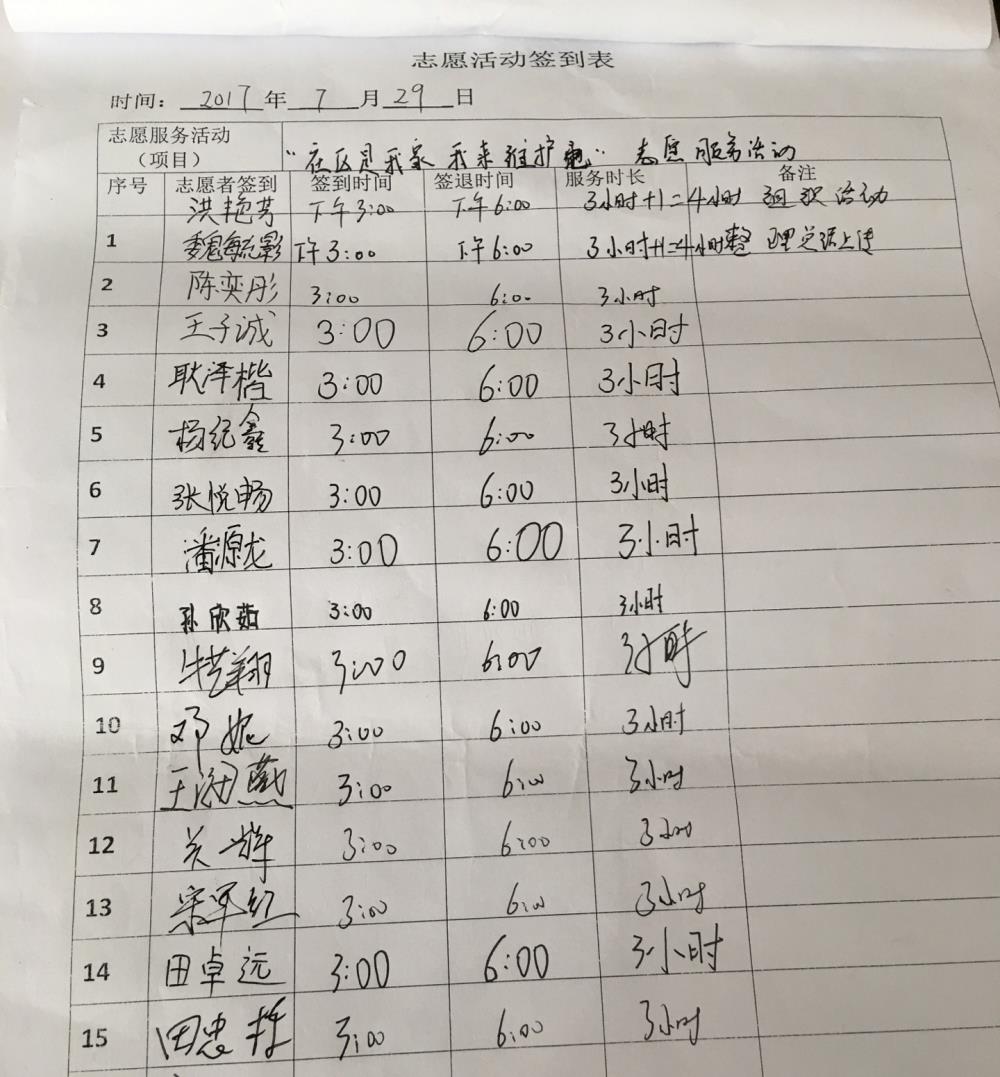 志愿活动签到表
时间: 2017 年 7 月 29 日
志愿服务活动
(项目)
"社区是我家 我来维护 " 志愿服务活动
序号 志愿者签到 签到时间 签退时间 服务时长 备注
洪艳芳 下午3:00 下午6:00 3小时+1=4小时 组织活动
1 魏毓影 下午3:00 下午6:00 3小时+1=4小时 整理 上传
2 陈奕彤 3:00 6:00 3小时
3 王子诚 3:00 6:00 3小时
4 耿泽楷 3:00 6:00 3小时
5 杨纪鑫 3:00 6:00 3小时
6 张悦畅 3:00 6:00 3小时
7 潘源龙 3:00 6:00 3小时
8 孙欣茹 3:00 6:00 3小时
9 3:00 6:00 3小时
10 邓妮 3:00 6:00 3小时
11 3:00 6:00 3小时
12 关 3:00 6:00 3小时
13 宋军红 3:00 6:00 3小时
14 田卓远 3:00 6:00 3小时
15 田忠 3:00 6:00 3小时